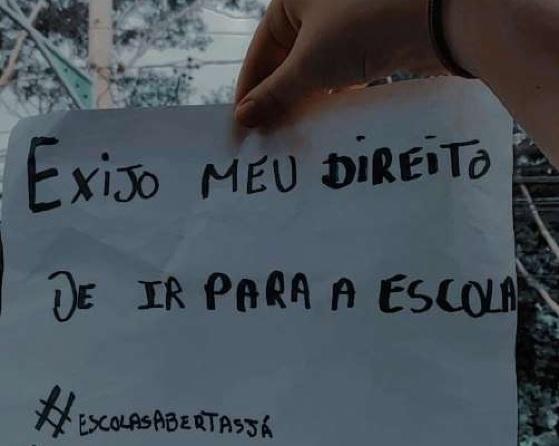 EXiJO MEU DiREiTO
DE IR PARA A ESCOLA
#ESCOLASABERTASJÁ